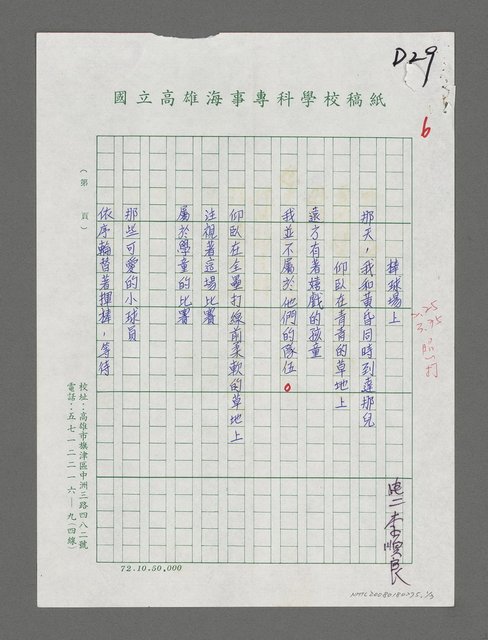 D29
國立高雄海事專科學校稿紙
6
棒球場上
那天，我和黃昏同時到達那兒
仰臥在青青的草地上
遠方有著嬉戲的孩童
我並不屬於他們的隊伍。
仰臥在全壘打線前柔軟的草地上
注視著這場比賽
屬於學童的比賽
那些可愛的小球員
依序輪替著揮棒，等待
3.75
照打
李順良
（第　頁）
校址：高雄市旗津區中洲三路四八二號
電話：五七一二二一六—九(四線)
72.10.50,000
NMTL20080180295, 1/3